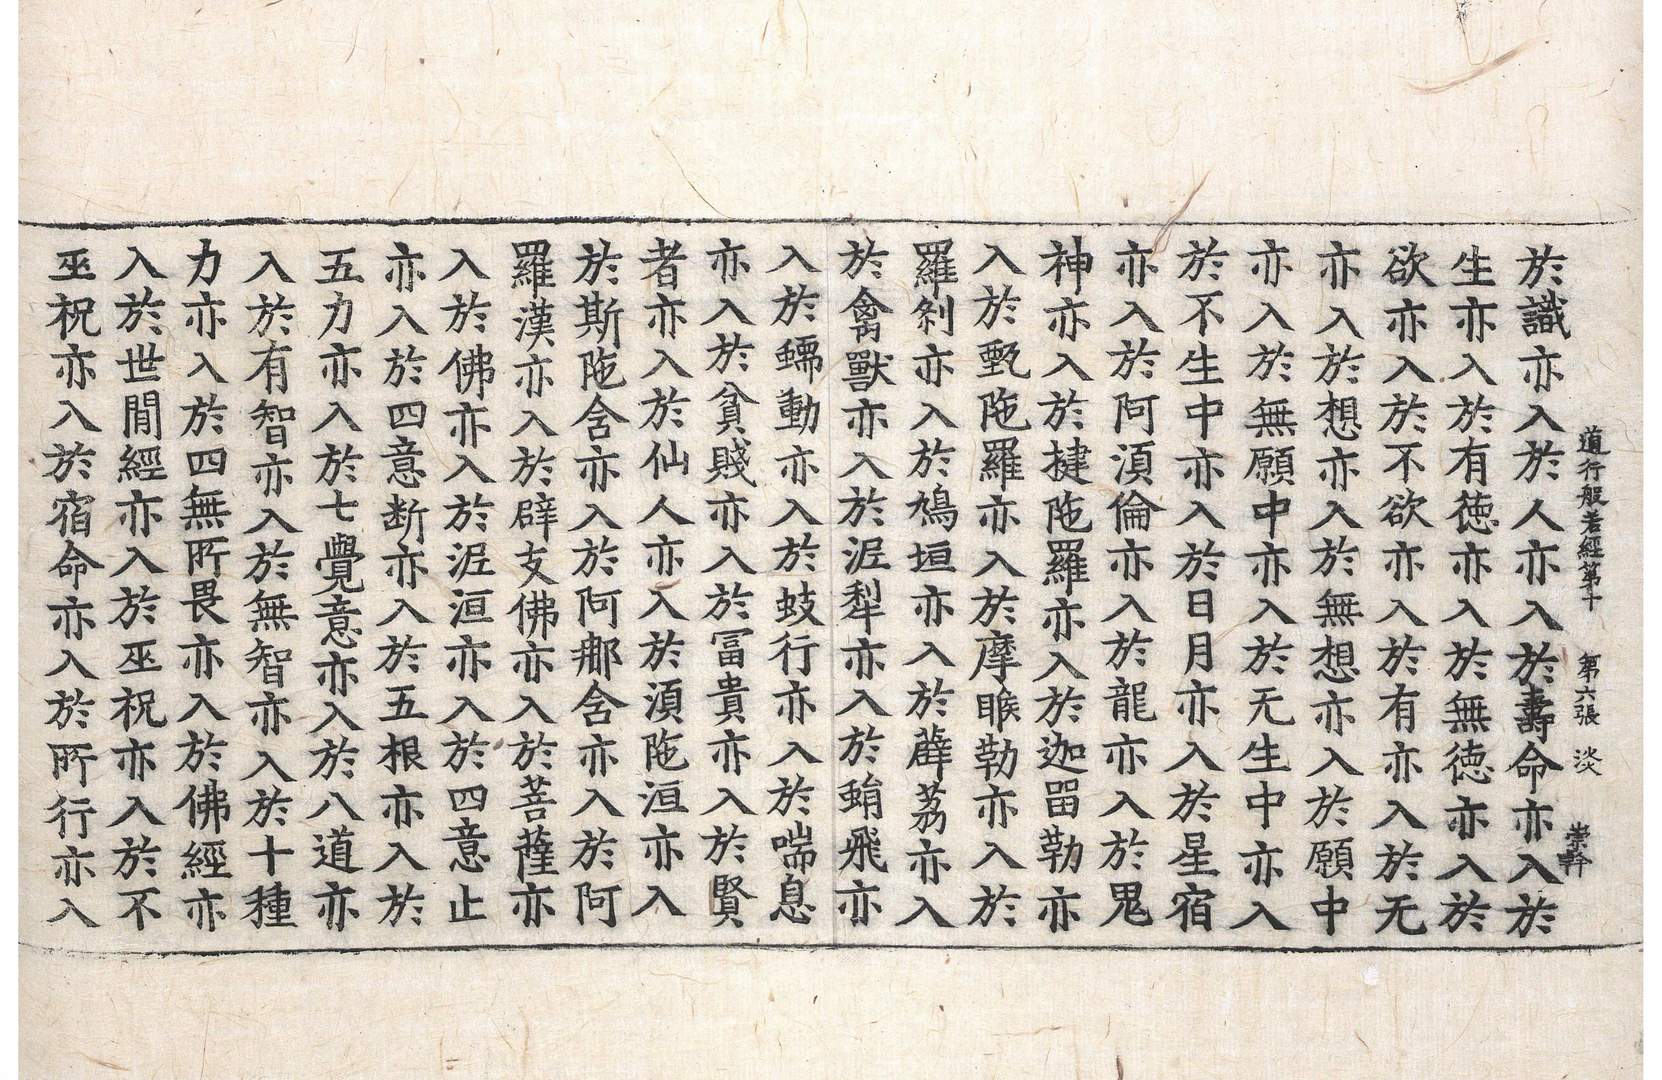 道行般若經第十　第六張　淡　崇幹
於識亦入於人亦入於壽命亦入於
生亦入於有德亦入於無德亦入於
欲亦入於不欲亦入於有亦入於无
亦入於想亦入於無想亦入於願中
亦入於無願中亦入於无生中亦入
於不生中亦入於日月亦入於星宿
亦入於阿湏倫亦入於龍亦入於鬼
神亦入於揵陁羅亦入於迦留勒亦
入於甄陁羅亦入於摩睺勒亦入於
羅刹亦入於鳩垣亦入於薜荔亦入
於禽獸亦入於泥犁亦入於蜎飛亦
入於蠕動亦入於蚑行亦入於喘息
亦入於貧賤亦入於冨貴亦入於賢
者亦入於仙人亦入於湏陁洹亦入
於斯陁含亦入於阿那含亦入於阿
羅漢亦入於辟支佛亦入於菩薩亦
入於佛亦入於泥洹亦入於四意止
亦入於四意断亦入於五根亦入於
五力亦入於七覺意亦入於八道亦
入於有智亦入於無智亦入於十種
力亦入於四無所畏亦入於佛經亦
入於世間經亦入於巫祝亦入於不
巫祝亦入於宿命亦入於所行亦入